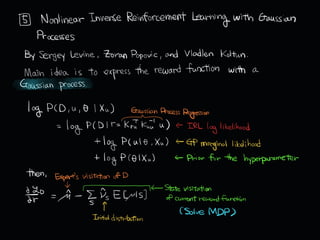 [5] Nonlinear Inverse Reinforcement Learning with Gaussian
Processes
By Sergey Levine, Zoran Popovic, and Vladlen Koltun.
Main idea is to express the reward function with a
Gaussian process.
Gaussian Process Regression
log P(D, u, θ | Xu)
= log P(D | r = Kruᵀ Kuu⁻¹ u) ← IRL log likelihood
+ log P(u | θ, Xu) ← GP marginal likelihood
+ log P(θ | Xu) ← Prior for the hyperparameter
then, Expert's visitation of D
∂ℒD/∂r = μ̂ - Σs ν̂s E[μ | s] ← State visitation
of current reward function
Initial distribution
(Solve MDP)